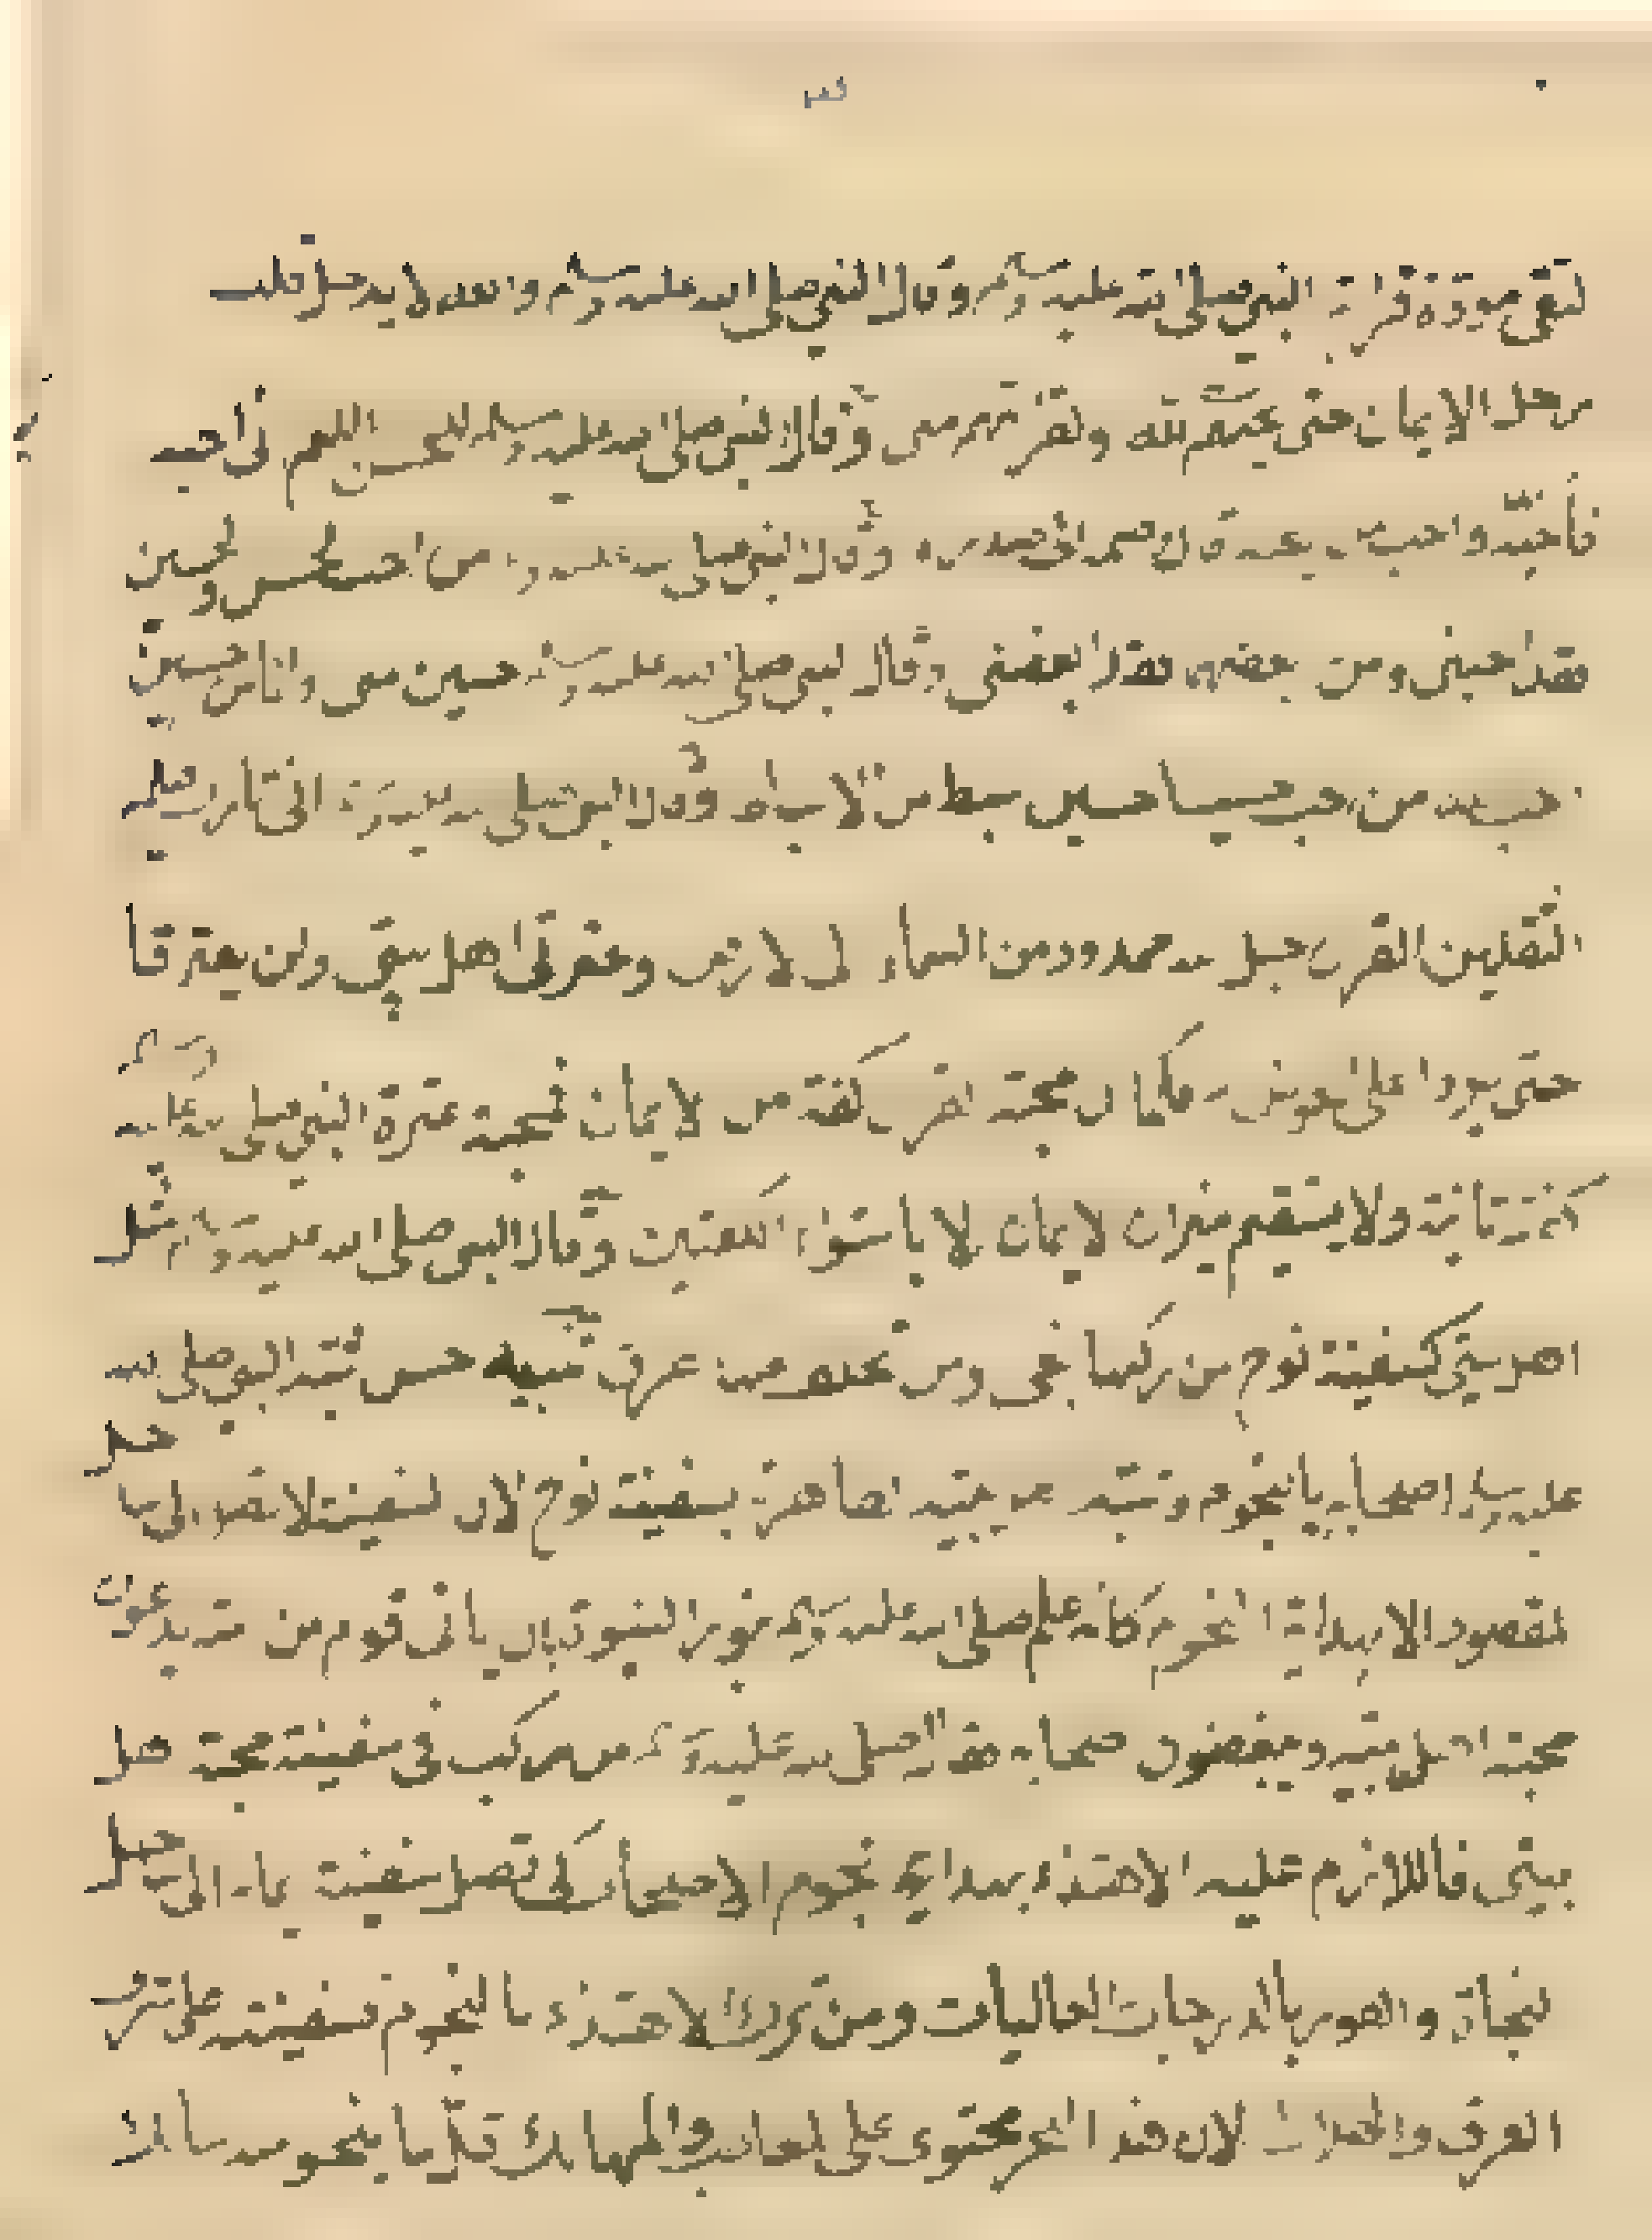 لتقى مودة قرابة النبي صلى الله عليه وسلم وقال النبي صلى الله عليه وسلم والله لا يدخل قلب
رجل الايمان حتى يحبكم لله ولقرابتى منى وقال النبي صلى الله عليه وسلم للحسن اللهم انى احبه
فأحبه واحب من يحبه قال ضمه الى صدره وقال النبي صلى الله عليه وسلم من احب الحسن والحسين
فقد احبنى ومن ابغضهما فقد ابغضنى وقال النبي صلى الله عليه وسلم حسين منى وانا من حسين
احب الله من احب حسينا حسين سبط من الاسباط وقال النبي صلى الله عليه وسلم انى تارك فيكم
الثقلين القرآن حبل الله ممدود من السماء الى الارض وعترتى اهل بيتى ولن يفترقا
حتى يردا على الحوض فكما ان محبة القرآن كفة من الايمان فمحبة عترة النبي صلى الله عليه وسلم
كفة ثانية ولا يستقيم ميزان الايمان الا باستواء الكفتين وقال النبي صلى الله عليه وسلم مثل
اهل بيتى كسفينة نوح من ركبها نجى ومن تخلف عنها غرق تنبيه حسن شبه النبي صلى الله
عليه وسلم اصحابه بالنجوم وشبه اهل بيته الطاهرة بسفينة نوح لان السفينة لا تصل الى ساحل
المقصود الا بهداية النجوم كأنه علم صلى الله عليه وسلم بنور النبوة بان ياتى قوم من امته يدعون
محبة اهل بيته ويبغضون اصحابه فقال صلى الله عليه وسلم من ركب فى سفينة محبة اهل
بيتى فاللازم عليه الاهتداء بهداية نجوم الاصحاب كى تصل سفينته الى ساحل
النجاة والفوز بالدرجات العاليات ومن ترك الاهتداء بالنجوم فسفينته على شرف
الغرق والهلاك لان هذا البحر محتوى على المعاطب والمهالك قل ما ينجو سالما